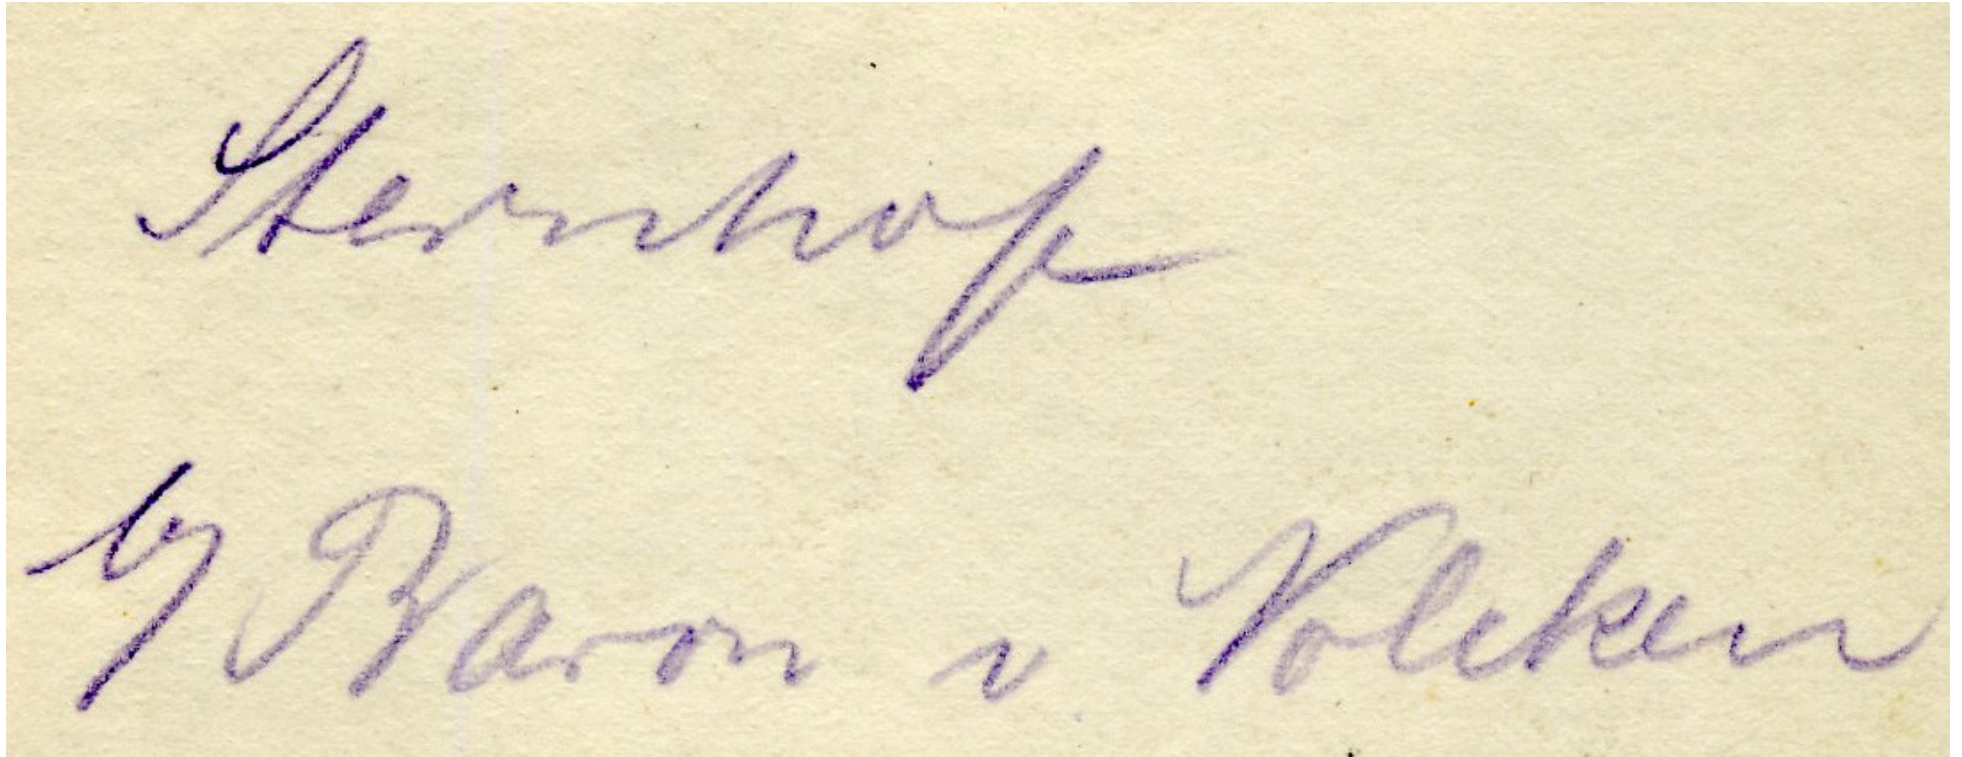 Sternhof
by Baron v. Nolcken